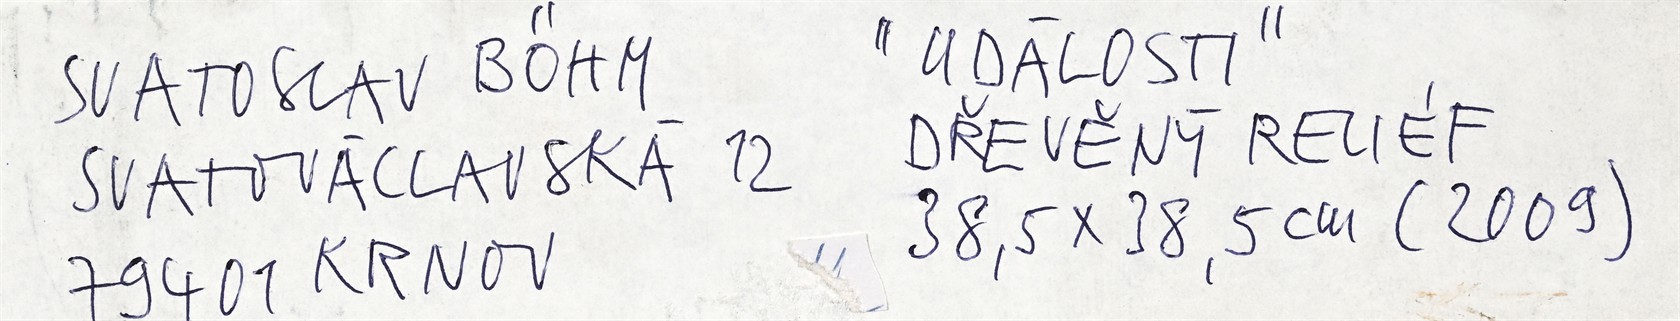 SVATOSLAV BÖHM
SVATOVÁCLAVSKÁ 12
79401 KRNOV
"UDÁLOSTI"
DŘEVĚNÝ RELIÉF
38,5 x 38,5 cm (2009)